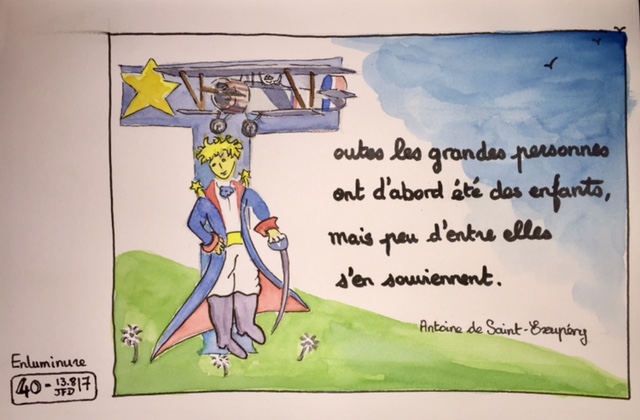 Toutes les grandes personnes
ont d'abord été des enfants,
mais peu d'entre elles
s'en souviennent.
Antoine de Saint-Exupéry
Enluminure
40 - 13.8.17
JFD